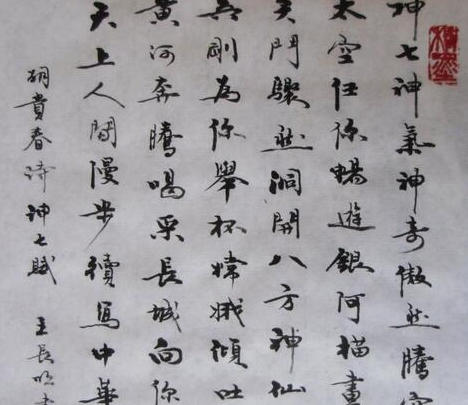 神七神氣神奇傲然騰空
太空任你暢遊銀河描畫
天門驟然洞開八方神仙
吳剛為你舉杯嫦娥傾吐
黃河奔騰喝采長城向你
天上人間漫步續寫中華
胡貴春詩神七賦 王長明書